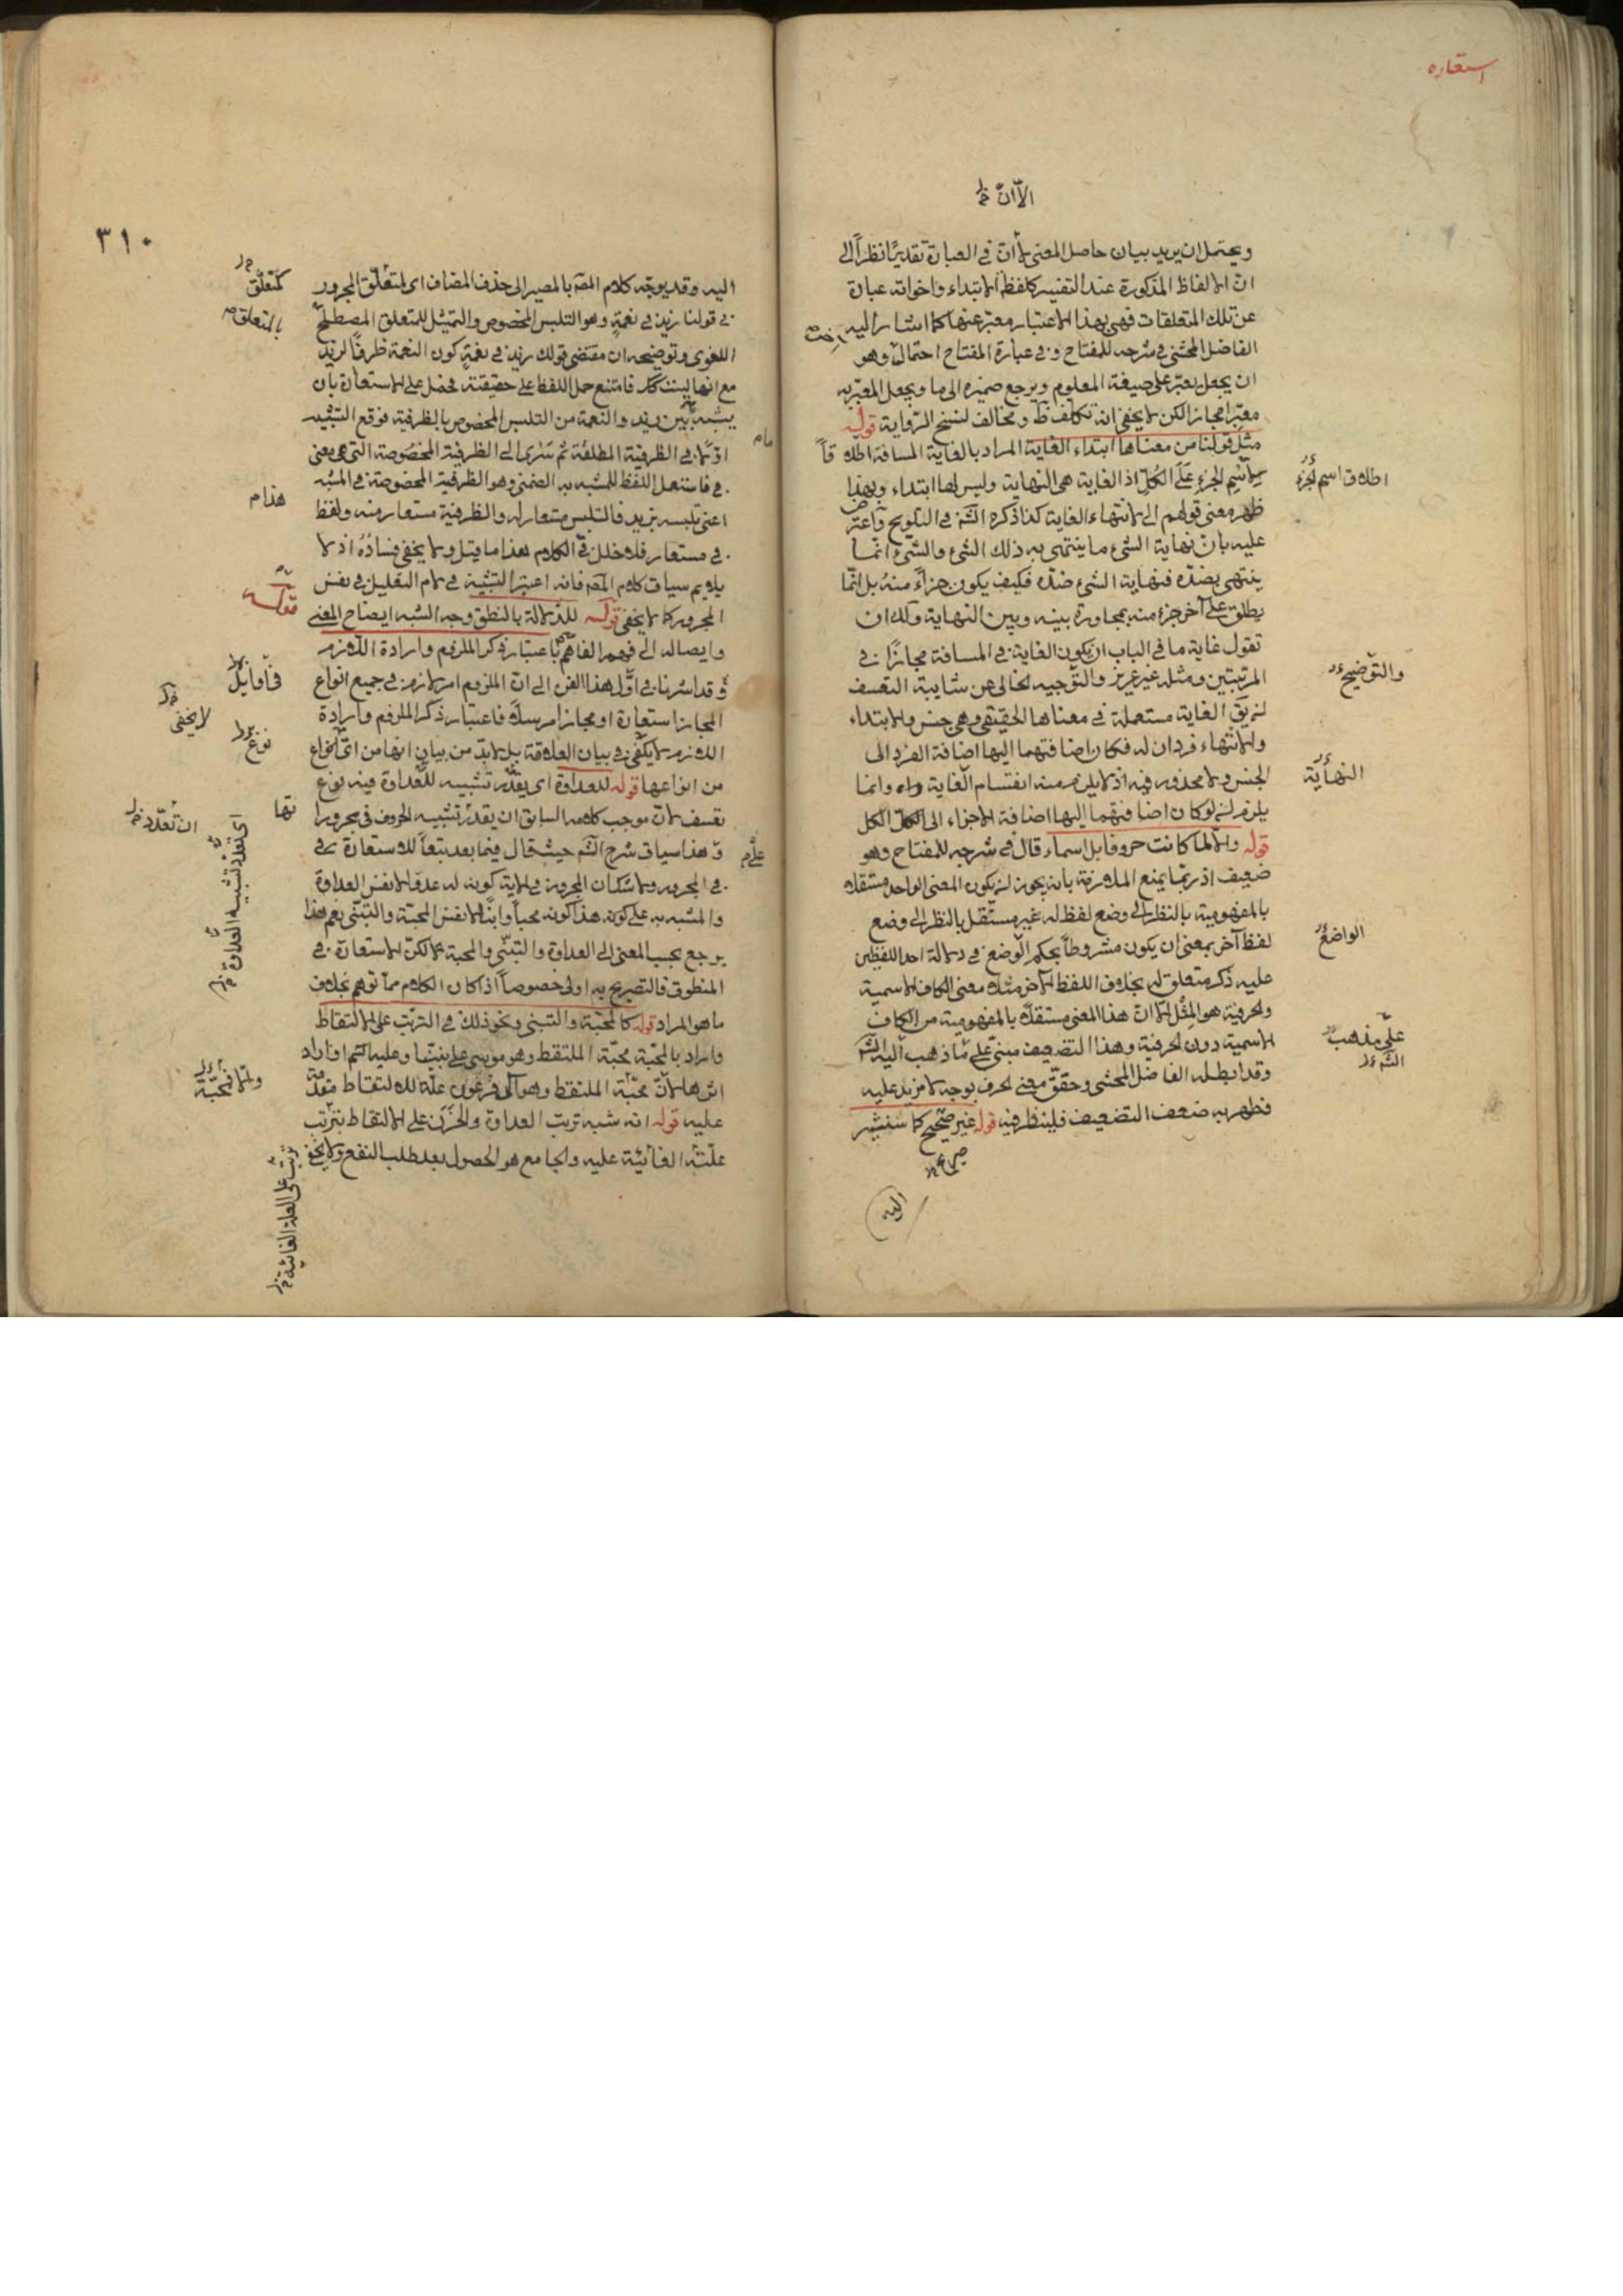 استعاره
الا ان
ويحتمل ان يريد بيان حاصل المعنى لا ان في العبارة تقديرا نظرا الى
ان الالفاظ المذكورة عند التفسير كلفظ الابتداء واخواته عبارة
عن تلك المتعلقات فهى بهذا الاعتبار معبر عنها كما اشار اليه
الفاضل المحشى في شرحه للمفتاح وفى عبارة المفتاح احتمال وهو
ان يجعل يعبر على صيغة المعلوم ويرجع ضميره الى ما ويجعل المعبر به
معبرا مجازا لكن لا يخفى انه تكلف ومخالف لنسخ الرواية قوله
مثل قولنا من معناها ابتداء الغاية المراد بالغاية المسافة اطلاقا
لاسم الجزء على الكل اذ الغاية هى النهاية وليس لها ابتداء وبهذا
اطلاق اسم الجزء
ظهر معنى قولهم الى لانتهاء الغاية كذا ذكره الش في التلويح واعترض
عليه بان نهاية الشئ ما ينتهى به ذلك الشئ والشئ انما
ينتهى بضده فنهاية الشئ ضده فكيف يكون جزاء منه بل انما
يطلق على آخر جزء منه بمجاورة بينه وبين النهاية ولك ان
تقول غاية ما في الباب ان يكون الغاية في المسافة مجازا في
المرتبتين ومثله غير عزيز والتوجيه الخالى عن شايبة التعسف
والتوضيح
الغاية مستعملة في معناها الحقيقى وهى جنس والابتداء
والانتهاء فردان له فكان اضافتهما اليها اضافة الفرد الى
الجنس ولا محذور فيه اذ لا يلزم منه انقسام الغاية وانما
النهاية
يلزم لو كان اضافتهما اليها اضافة الاجزاء الى الكل
قوله والا لما كانت حروفا بل اسماء قال في شرحه للمفتاح وهو
ضعيف اذ ربما يمنع الملازمة بانه يجوز ان يكون المعنى الواحد مستقلا
بالمفهومية بالنظر الى وضع لفظ له غير مستقل بالنظر الى وضع
لفظ آخر بمعنى ان يكون مشروطا بحكم الوضع في دلالة احد اللفظين
الواضع
عليه ذكر متعلق له بخلاف اللفظ الآخر مثلا معنى الكاف الاسمية
والحرفية هو المثل الا ان هذا المعنى مستقل بالمفهومية من الكاف
الاسمية دون الحرفية وهذا التضعيف مبنى على ما ذهب اليه الش
على مذهب
الش
وقد ابطله الفاضل المحشى وحقق معنى الحرف بوجه لا مزيد عليه
فظهر به ضعف التضعيف فلينظر فيه قوله غير صحيح كما سنشير
اليه
٣١٠
اليه وقد يوجه كلام المص بالمصير الى حذف المضاف اى لمتعلق المجرور
فى قولنا زيد فى نعمة وهو التلبس المخصوص والتمثيل للمتعلق المصطلح
اللغوى وتوضيحه ان مقتضى قولك زيد فى نعمة كون النعمة ظرفا لزيد
مع انها ليست كك فامتنع حمل اللفظ على حقيقته فحمل على الاستعارة بان
يشبه ما بين زيد والنعمة من التلبس المخصوص بالظرفية فوقع التشبيه
اولا فى الظرفية المطلقة ثم سرى الى الظرفية المخصوصة التى هى معنى
فى فاستعمل اللفظ للمشبه به الضمنى وهو الظرفية المخصوصة فى المشبه
هذا
اعنى تلبسه بزيد فالتلبس مستعار له والظرفية مستعار منه ولفظ
فى مستعار فلا خلل فى الكلام هذا ما قيل ولا يخفى فساده اذ لا
يلايم سياق كلام المص فانه اعتبر التشبيه فى لام التعليل فى نفس
المجرور كما لا يخفى قوله للدلالة بالنطق وجه الشبه ايضاح المعنى
قوله
وايصاله الى فهم الفاهم باعتبار ذكر الملزوم وارادة اللازم
وقد اشرنا فى اول هذا الفن الى ان الملزوم امر لازم فى جميع انواع
لا يخفى
المجاز استعارة او مجازا مرسلا فاعتبار ذكر الملزوم وارادة
اللازم لا يكفى فى بيان العلاقة بل لا بد من بيان انها من اى انواع
نوع
من انواعها قوله للعداوة اى يقدر تشبيه للعداوة فيه نوع
تعسف لان موجب كلامه السابق ان يقدر تشبيه الحروف فى مجرورا
تها
وهذا سياق شرح الش حيث قال فيما بعد تبعا للاستعارة
فى المجرور ولا شك ان المجرور فى الآية كونه له عدوا لا نفس العداوة
والمشبه به على كونه هذا كونه محبا وابنا لا نفس المحبة والتبنى نعم هذا
يرجع بحسب المعنى الى العداوة والتبنى والمحبة لكن الاستعارة فى
المنطوق فالتصريح به اولى خصوصا اذا كان الكلام مما توهم بخلاف
ما هو المراد قوله كالمحبة والتبنى ونحو ذلك فى الترتب على الالتقاط
واراد بالمحبة محبة الملتقط وهو موسى على نبينا وعليه السلم او اراد
اثرها لان محبة الملتقط وهو آل فرعون علة للالتقاط متقدمة
عليه قوله انه شبه ترتب العداوة والحزن على الالتقاط بترتب
علته الغائية عليه والجامع هو الحصول بعد طلب النفع ولا يخفى
ترتب على العلة الغائية